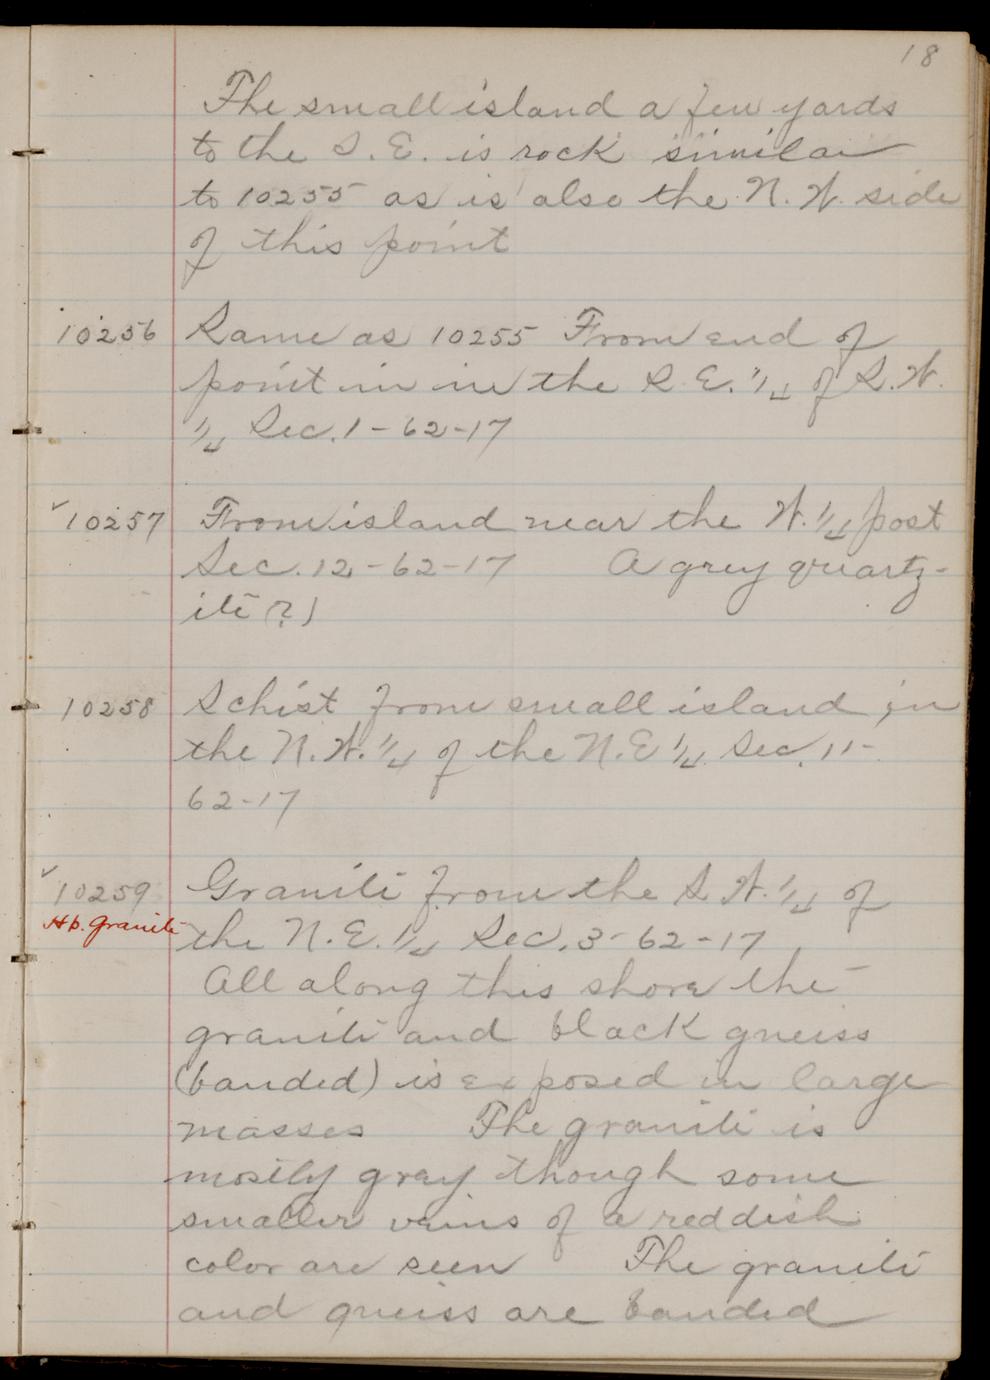 18
The small island a few yards
to the S. E. is rock similar
to 10255 as is also the N. W. side
of this point
10256 Same as 10255 From end of
point in in the S. E. 1/4 of S. W.
1/4 Sec. 1-62-17
✓10257 From island near the W. 1/4 post
Sec. 12-62-17 A grey quartz-
ite (?)
10258 Schist from small island in
the N. W. 1/4 of the N. E 1/4 Sec. 11-
62-17
✓10259 Granite from the S. W. 1/4 of
Hb. granite
the N. E. 1/4 Sec. 3-62-17
All along this shore the
granite and black gneiss
(banded) is exposed in large
masses The granite is
mostly gray though some
smaller veins of a reddish
color are seen The granite
and gneiss are banded